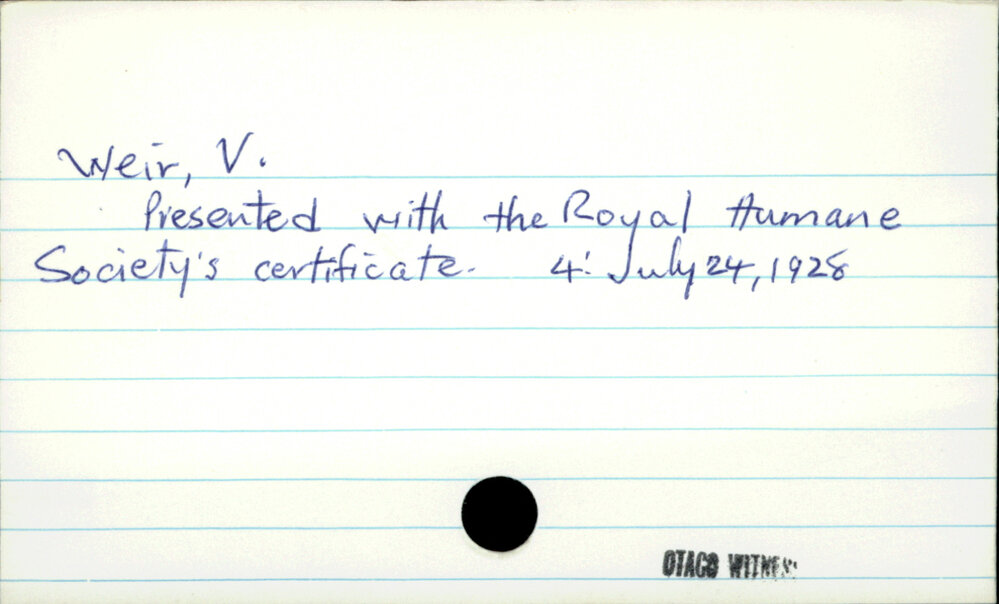 Weir, V.
Presented with the Royal Humane
Society's certificate. 4: July 24, 1928
OTAGO WITNESS